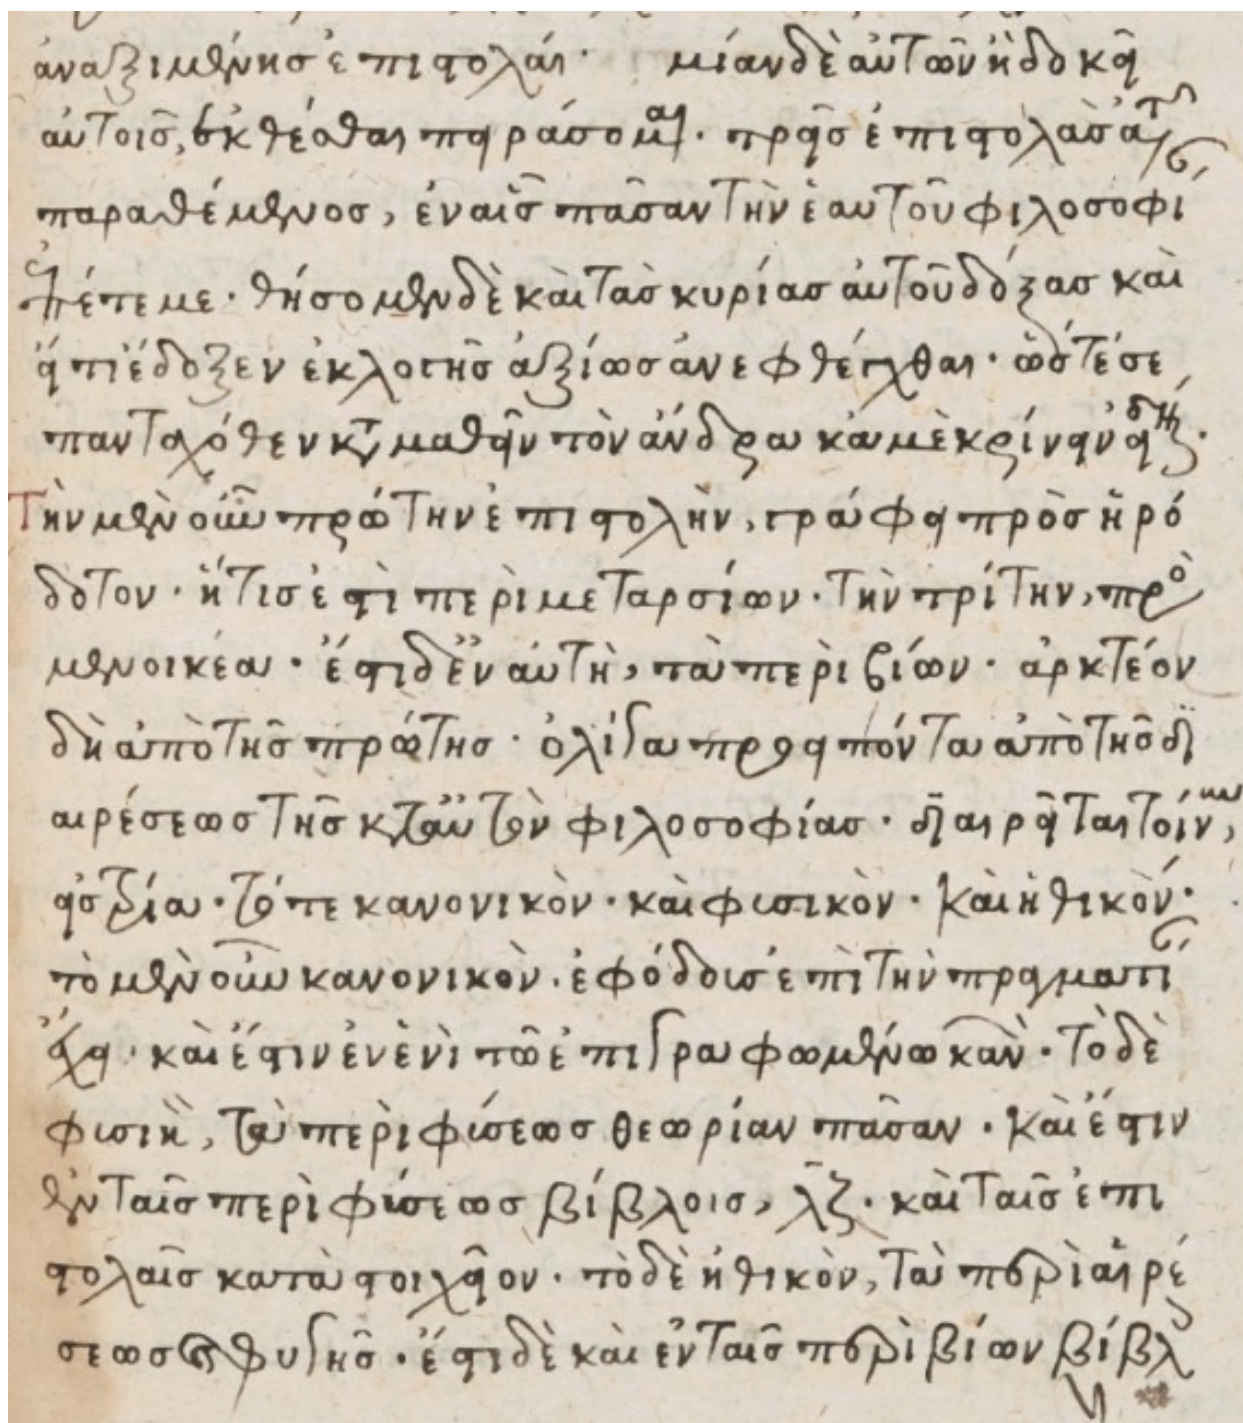 ἀναξιμένησ ἐπιστολάι· μίαν δὲ αὐτῶν ἢ δοκεῖ
αὐτοῖσ, ἐκθέσθαι πειράσομαι· τρεῖσ ἐπιστολὰσ αὐτοῦ
παραθέμενοσ, ἐν αἷσ πᾶσαν τὴν ἑαυτοῦ φιλοσοφί
ἐπέτεμε· θήσομεν δὲ καὶ τὰσ κυρίασ αὐτοῦ δόξασ καὶ
εἴ τι ἔδοξεν ἐκλογῆσ ἀξίωσ ἀνεφθέγχθαι· ὥστέ σε
πανταχόθεν καταμαθεῖν τὸν ἄνδρα κἀμὲ κρίνειν
Τὴν μὲν οὖν πρώτην ἐπιστολὴν, γράφει πρὸσ ἡρό
δοτον· ἥτισ ἐστὶ περὶ μεταρσίων· τὴν τρίτην, πρὸ
μενοικέα· ἔστι δ' ἐν αὐτῆ, τὰ περὶ βίων· ἀρκτέον
δὴ ἀπὸ τῆσ πρώτησ· ὀλίγα προειπόντα ἀπὸ τῆσ δι
αιρέσεωσ τῆσ κατ' αὐτὸν φιλοσοφίασ· διαιρεῖται τοίνυν,
εἰσ τρία· τό τε κανονικὸν· καὶ φισικὸν· καὶ ἠθικόν·
τὸ μὲν οὖν κανονικὸν· ἐφόδοισ ἐπὶ τὴν πραγματί
ἔχει· καὶ ἔστιν ἐν ἑνὶ τῶ ἐπιγραφωμένω κανὼν· τὸ δὲ
φισικ, τὴν περὶ φίσεωσ θεωρίαν πᾶσαν· καὶ ἔστιν
ἐν ταῖσ περὶ φίσεωσ βίβλοισ, λζ· καὶ ταῖσ ἐπι
στολαῖσ κατὰ στοιχεῖον· τὸ δὲ ἠθικὸν, τὰ περὶ αἱρέ
σεωσ καὶ φυγῆσ· ἔστι δὲ καὶ ἐν ταῖσ περὶ βίων βίβλ